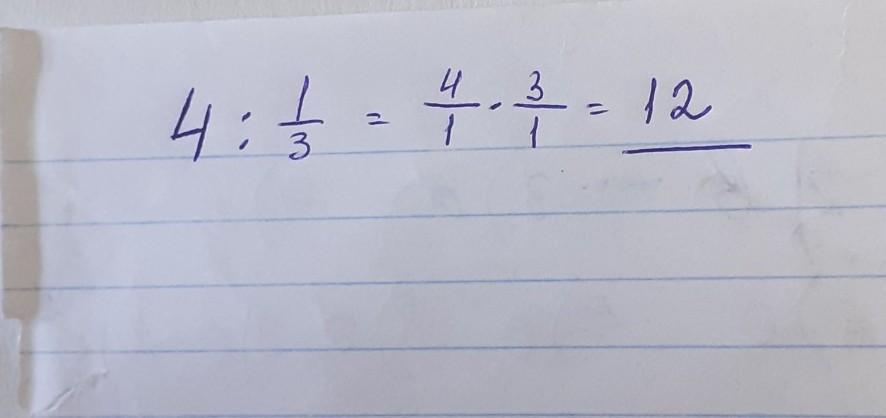 4 : 1/3 = 4/1 · 3/1 = 12